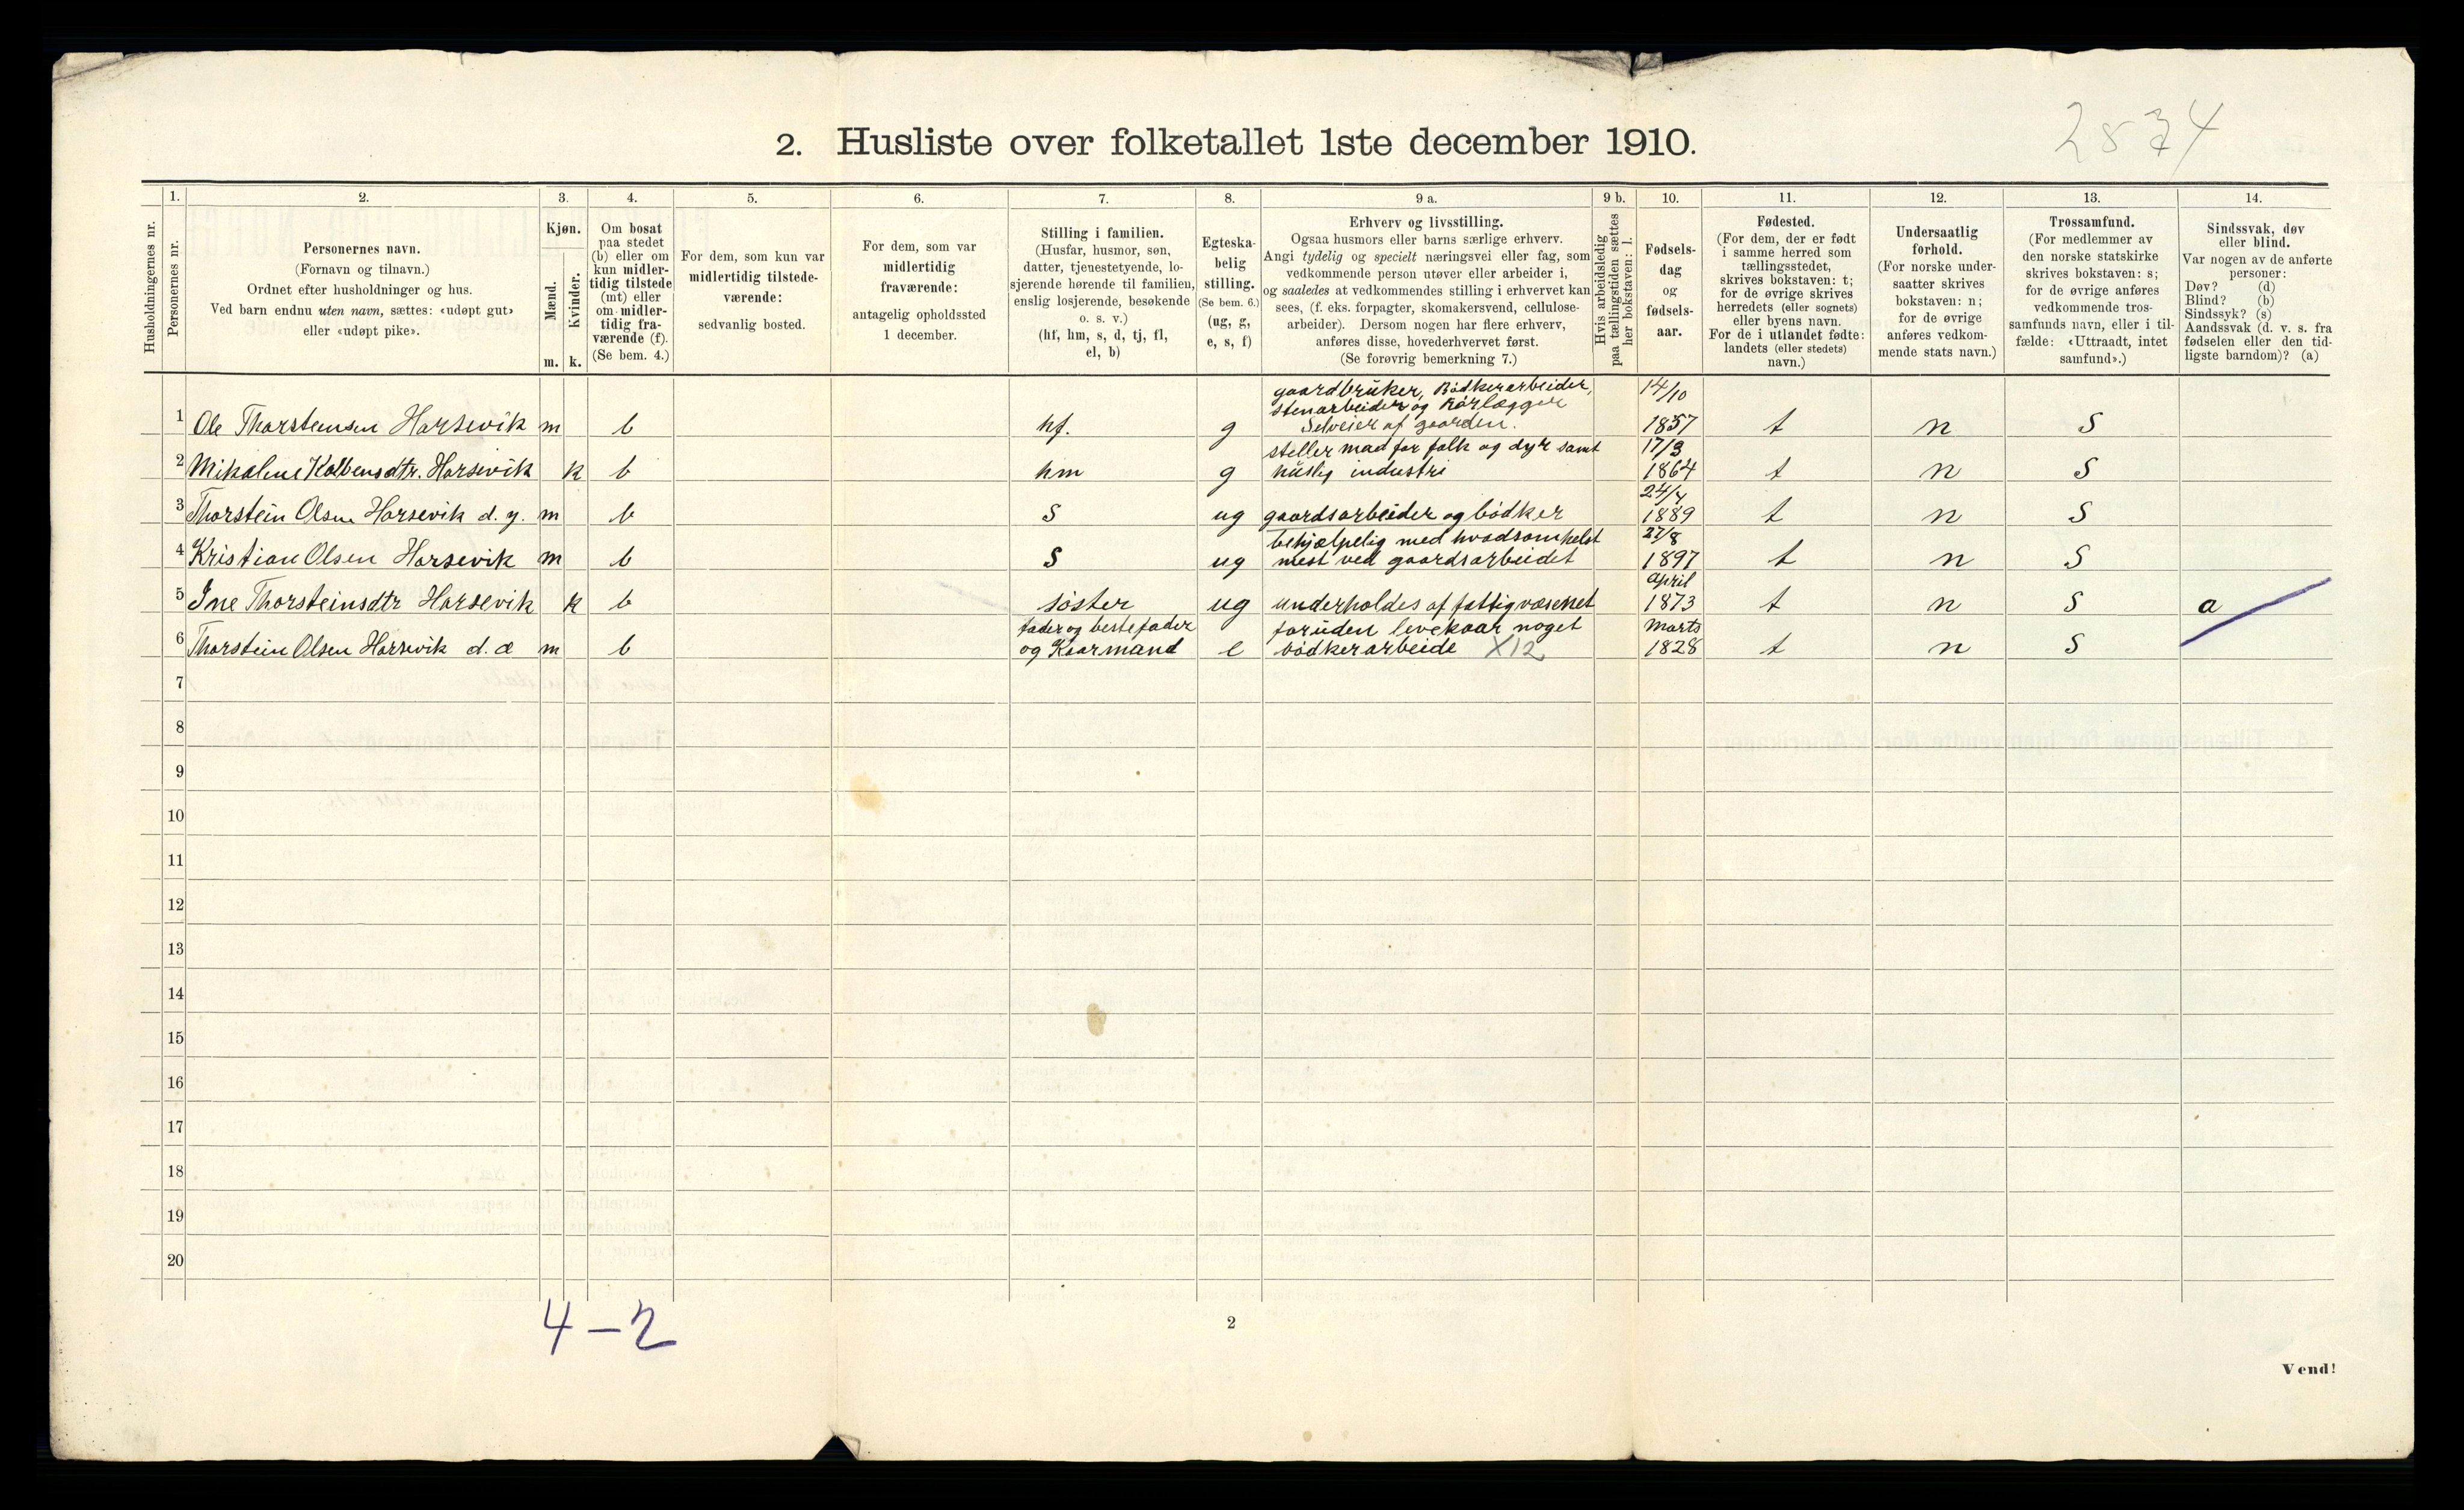 2834
2. Husliste over folketallet 1ste december 1910.
Husholdningernes nr.
1. Personernes nr.
2. Personernes navn.
(Fornavn og tilnavn.)
Ordnet efter husholdninger og hus.
Ved barn endnu uten navn, sættes: «udøpt gut»
eller «udøpt pike».
3. Kjøn.
Mænd. Kvinder.
m. k.
4. Om bosat
paa stedet
(b) eller om
kun midler-
tidig tilstede
(mt) eller
om midler-
tidig fra-
værende (f).
(Se bem. 4.)
5. For dem, som kun var
midlertidig tilstede-
værende:
sedvanlig bosted.
6. For dem, som var
midlertidig
fraværende:
antagelig opholdssted
1 december.
7. Stilling i familien.
(Husfar, husmor, søn,
datter, tjenestetyende, lo-
sjerende hørende til familien,
enslig losjerende, besøkende
o. s. v.)
(hf, hm, s, d, tj, fl,
el, b)
8. Egteska-
belig
stilling.
(Se bem. 6.)
(ug, g,
e, s, f)
9 a. Erhverv og livsstilling.
Ogsaa husmors eller barns særlige erhverv.
Angi tydelig og specielt næringsvei eller fag, som
vedkommende person utøver eller arbeider i,
og saaledes at vedkommendes stilling i erhvervet kan
sees, (f. eks. forpagter, skomakersvend, cellulose-
arbeider). Dersom nogen har flere erhverv,
anføres disse, hovederhvervet først.
(Se forøvrig bemerkning 7.)
9 b. Hvis arbeidsledig
paa tællingstiden sættes
her bokstaven: l.
10. Fødsels-
dag
og
fødsels-
aar.
11. Fødested.
(For dem, der er født
i samme herred som
tællingsstedet,
skrives bokstaven: t;
for de øvrige skrives
herredets (eller sognets)
eller byens navn.
For de i utlandet fødte:
landets (eller stedets)
navn.)
12. Undersaatlig
forhold.
(For norske under-
saatter skrives
bokstaven: n;
for de øvrige
anføres vedkom-
mende stats navn.)
13. Trossamfund.
(For medlemmer av
den norske statskirke
skrives bokstaven: s;
for de øvrige anføres
vedkommende tros-
samfunds navn, eller i til-
fælde: «Uttraadt, intet
samfund».)
14. Sindssvak, døv
eller blind.
Var nogen av de anførte
personer:
Døv? (d)
Blind? (b)
Sindssyk? (s)
Aandssvak (d. v. s. fra
fødselen eller den tid-
ligste barndom)? (a)
gaardbruker, Bødkerarbeider, 14/10
stenarbeider og Rørlægger
1 Ole Thorsteinsen Harsevik m b hf. g Selveier af gaarden. 1857 t n S
steller mad for folk og dyr samt 17/3
2 Mikaline Kolbensdtr. Harsevik k b hm g huslig industri 1864 t n S
24/4
3 Thorstein Olsen Harsevik d. y. m b S ug gaardsarbeider og bødker 1889 t n S
behjælpelig med hvadsomhelst 27/8
4 Kristian Olsen Harsevik m b S ug mest ved gaardsarbeidet 1897 t n S
April
5 Ine Thorsteinsdtr Harsevik k b søster ug underholdes af fattigvæsenet 1873 t n S a
fader og bestefader foruden levekaar noget Marts
6 Thorstein Olsen Harsevik d. æ m b og Kaarmand e bødkerarbeide X12 1828 t n S
7
8
9
10
11
12
13
14
15
16
17
18
19
20
4 – 2
2
Vend!